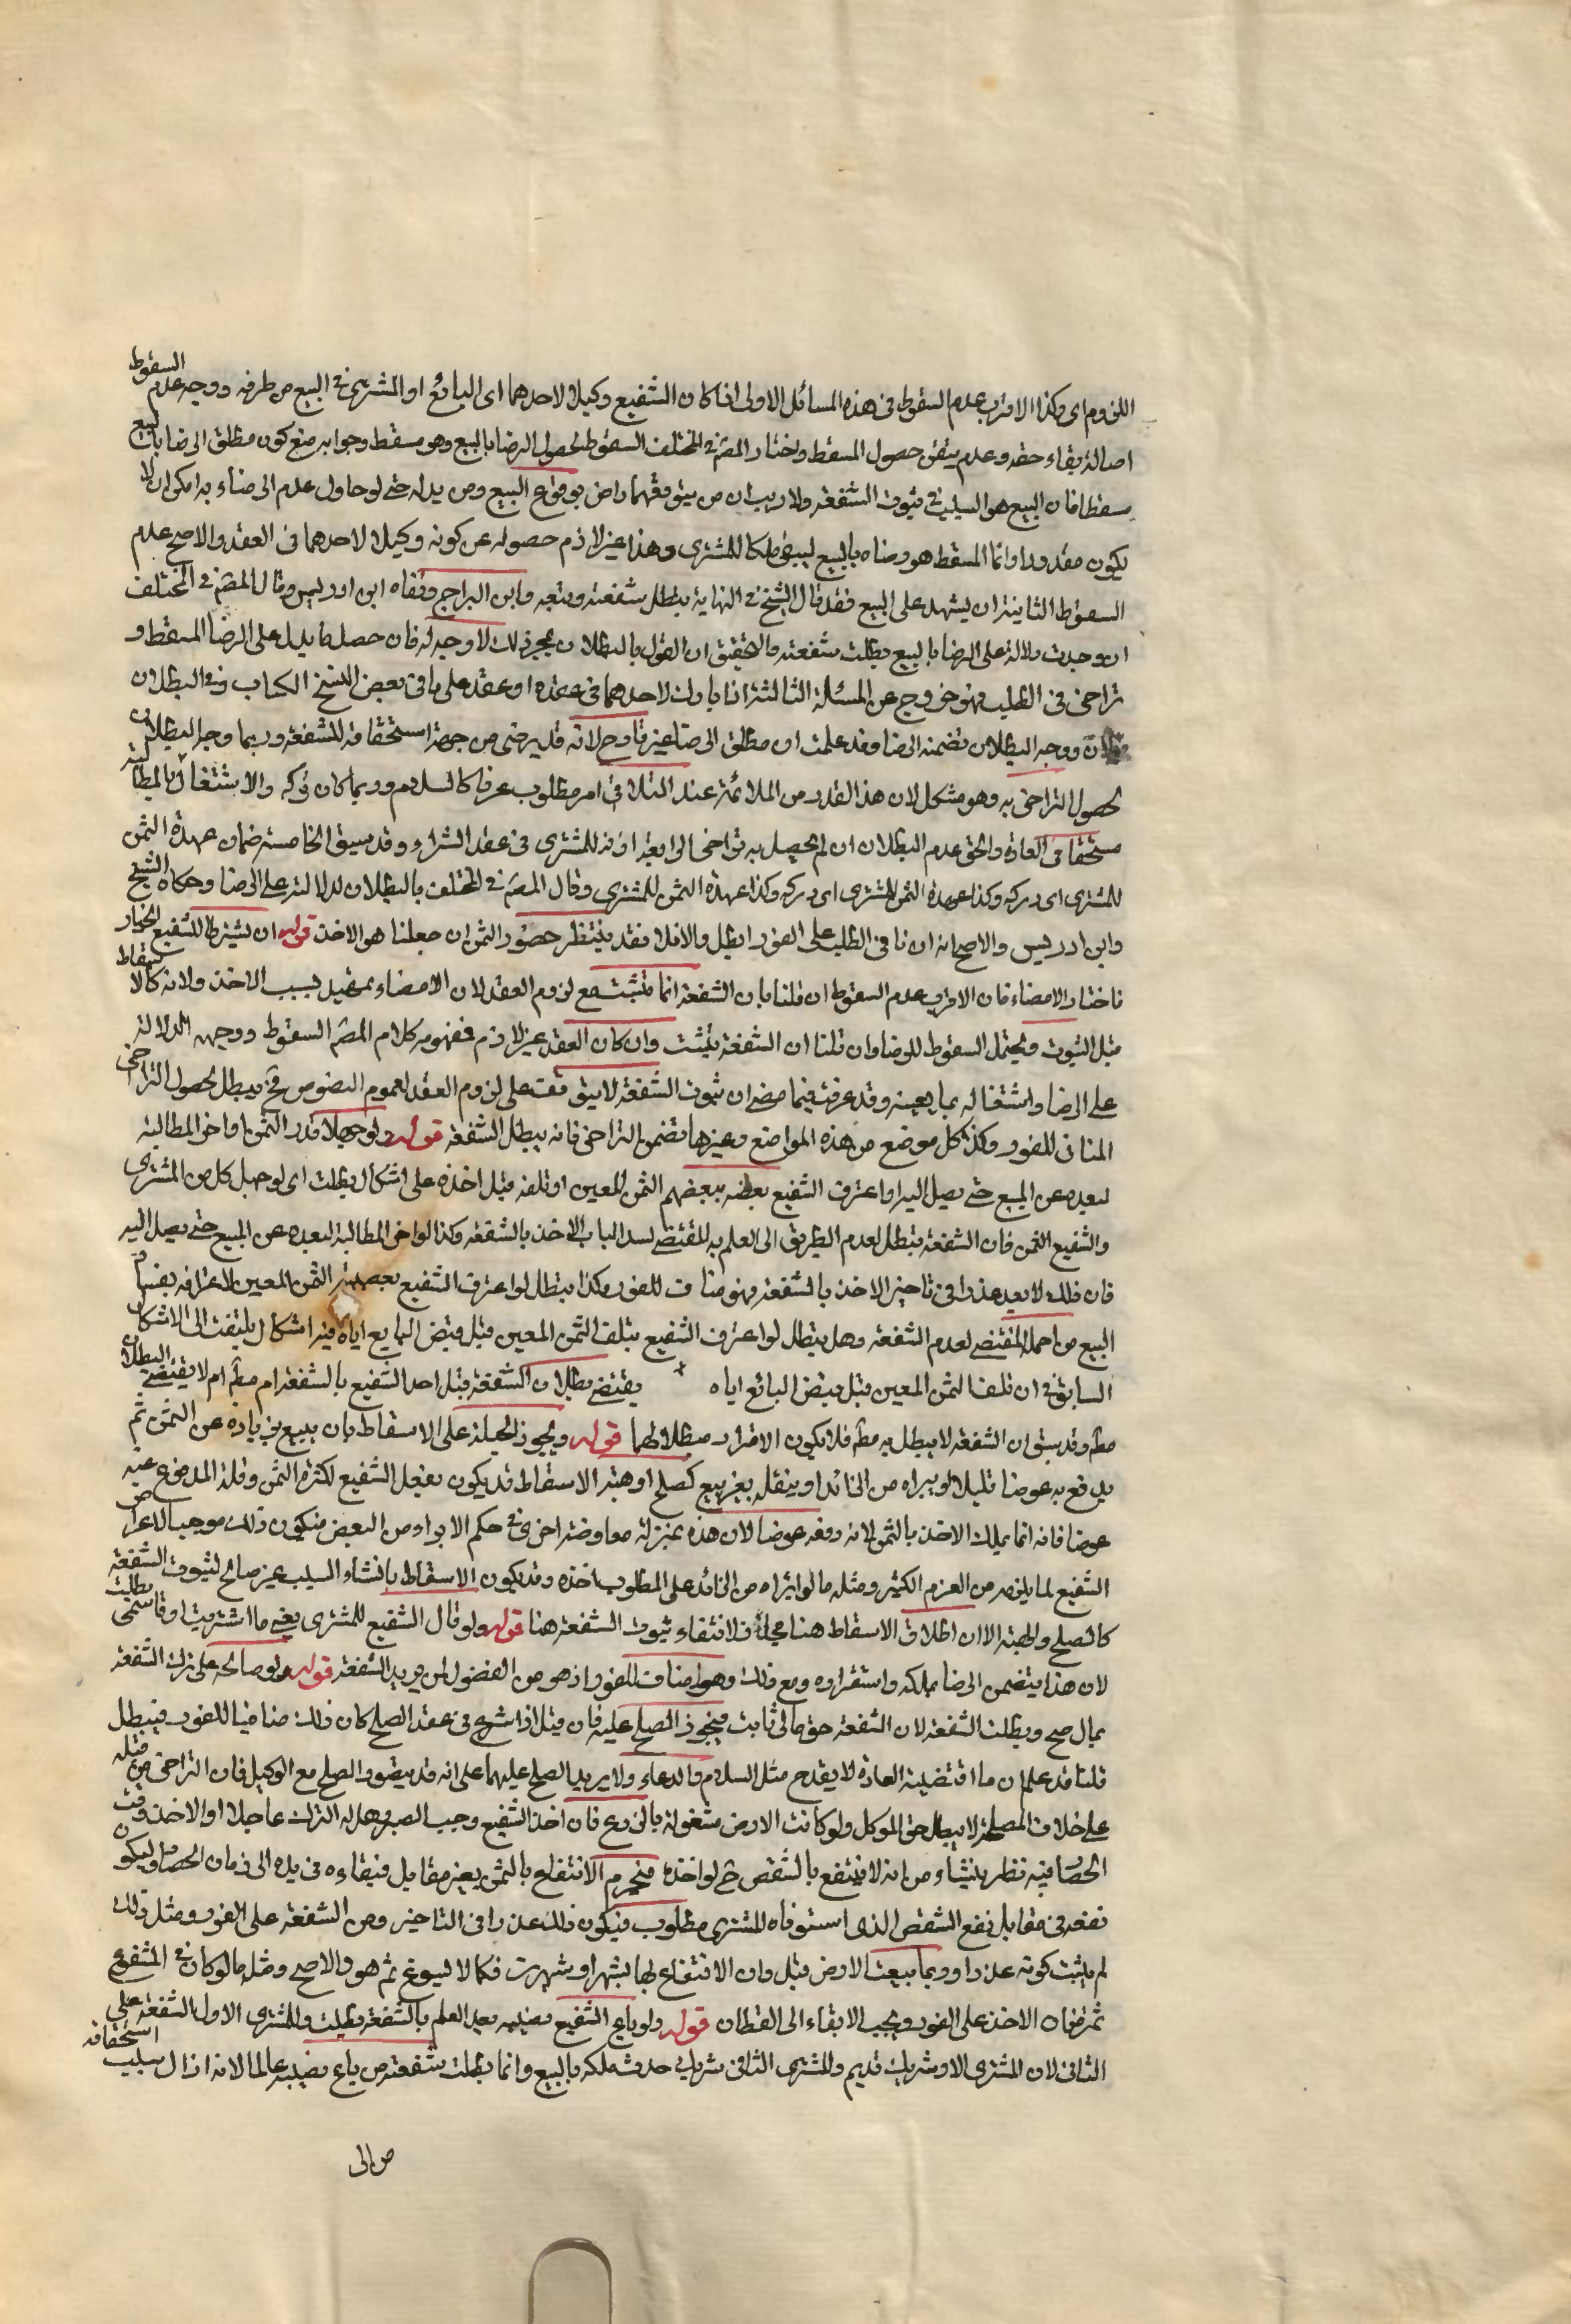 اللزوم اى وكذا الاقرب عدم السقوط فى هذه المسائل الاولى اذا كان الشفيع وكيلا لاحدهما اى البائع او المشترى فى البيع من طرفه ووجه عدم السقوط
اصالة بقاء حقه وعدم تيقن حصول المسقط واختار المصنف فى المختلف السقوط لحصول الرضا بالبيع وهو مسقط وجوابه منع كون مطلق الرضا بالبيع
مسقطا فان البيع هو السبب فى ثبوت الشفعة ولا ريب ان من يتوقعهما راض بوقوع البيع ومريد له حتى لو حاول عدم الرضاء به امكن ان لا
يكون مقدورا وانما المسقط هو رضاه بالبيع ليبقى ملكا للمشترى وهذا غير لازم حصوله عن كونه وكيلا لاحدهما فى العقد والاصح عدم
السقوط الثانية ان يشهد على البيع فقد قال الشيخ فى النهاية يبطل شفعته وتبعه وابن البراج ونفاه ابن ادريس وقال المصنف فى المختلف
ان وجدت دلالة على الرضا بالبيع بطلت شفعته والتحقيق ان القول بالبطلان بمجرد ذلك لا وجه له فان حصل ما يدل على الرضا المسقط و
تراخى فى الطلب فهو خروج عن المسئلة الثالثة اذا بارك لاحدهما فى عقده او عقد على ما فى بعض النسخ الكتاب وفى البطلان
قولان ووجه البطلان تضمنه الرضا وقد علمت ان مطلق الرضا غير قادح لانه قد يرضى من جهة استحقاقه للشفعة وربما وجه البطلان
لحصول التراخى به وهو مشكل لان هذا القدر من الملائمة عند التلاقى امر مطلوب عرفا كالسلام وربما كان تركه والاشتغال بالمطالبة
مستحقا فى العادة والحق عدم البطلان ان لم يحصل به تراخى الرابعة اذنه للمشترى فى عقد الشراء وقد سبق الخامسة ضمان عهدة الثمن
للمشترى اى دركه وكذا عهدة الثمن للمشترى اى دركه وكذا عهدة الثمن للمشترى وقال المصنف فى المختلف بالبطلان لدلالته على الرضا وحكاه الشيخ
وابن ادريس والاصح انه ان نافى الطلب على الفور ابطل والا فلا فقد ينتظر حضور الثمن ان جعلنا هو الاخذ قوله ان يشترط للشفيع الخيار
فاختار الامضاء فان الاقرب عدم السقوط ان قلنا بان الشفعة انما تثبت مع لزوم العقد لان الامضاء تمهيد لسبب الاخذ ولانه كالاسقاط
قبل الثبوت ويحتمل السقوط للرضا وان قلنا ان الشفعة يثبت وان كان العقد غير لازم فمفهوم كلام المصنف السقوط ووجهه الدلالة
على الرضا واشتغاله بما يعينه وقد عرفت فيما مضى ان ثبوت الشفعة لا يتوقف على لزوم العقد لعموم النصوص فح يبطل لحصول التراخى
المنافى للفور وكذا كل موضع من هذه المواضع وغيرها تضمن التراخى فانه يبطل الشفعة قوله ولو جهلا قدر الثمن او اخر المطالبة
لبعده عن المبيع حتى يصل اليه او اعترف الشفيع بغصبية الثمن المعين او تلفه قبل اخذه على اشكال بطلت اى لو جهل كل من المشترى
والشفيع الثمن فان الشفعة يبطل لعدم الطريق الى العلم به المقتضى لسد الباب الاخذ بالشفعة وكذا لو اخر المطالبة لبعده عن المبيع حتى يصل اليه
فان ذلك لا يعد عذرا فى تاخير الاخذ بالشفعة فهو مناف للفور وكذا يبطل لو اعترف الشفيع بغصبية الثمن المعين لاعترافه بفساد
البيع من اصله المقتضى لعدم الشفعة وهل يبطل لو اعترف الشفيع بتلف الثمن المعين قبل قبض البايع اياه فيه اشكال يلتفت الى الاشكال
السابق فى ان تلف الثمن المعين قبل قبض البائع اياه يقتضى بطلان الشفعة قبل اخذ الشفيع بالشفعة ام مطلقا ام لا يقتضى البطلان
مطلقا وقد سبق ان الشفعة لا يبطل به مطلقا فلا يكون الاقرار مبطلا لها قوله ويجوز الحيلة على الاسقاط بان يبيع بزيادة عن الثمن ثم
يدفع به عوضا قليلا او يبراه من الزائد او ينقله بغير بيع كصلح او هبة الاسقاط قد يكون بفعل الشفيع لكثرة الثمن وقلة المدفوع عنه
عوضا فانه انما يملك الاخذ بالثمن لانه دفعه عوضا لان هذه بمنزلة معاوضة اخرى فى حكم الابراء من البعض فيكون ذلك موجبا لاعراض
الشفيع لما يلزمه من الغرم الكثير ومثله ما لو ابراه من الزائد على المطلوب اخذه وقد يكون الاسقاط بانشاء السبب غير صالح لثبوت الشفعة
كالصلح والهبة الا ان اطلاق الاسقاط هنا مجاز لانتفاء ثبوت الشفعة هنا قوله ولو قال الشفيع للمشترى بعنى ما اشتريت او قاسمنى بطلت
لان هذا يتضمن الرضا بملكه واستقراره ومع ذلك وهو مناف للفور اذ هو من الفضول لمن يريد الشفعة قوله ولو صالحه على ترك الشفعة
بمال صح وبطلت الشفعة لان الشفعة حق مالى ثابت فيجوز الصلح عليه فان قيل اذا شرع فى عقد الصلح كان ذلك منافيا للفور فيبطل
قلنا قد علم ان ما اقتضته العادة لا يقدح مثل السلام والدعاء ولا يريد الصلح عليهما على انه قد يتصور الصلح مع الوكيل فان التراخى من قبله
على خلاف المصلحة لا يبطل حق الموكل ولو كانت الارض مشغولة بالزرع فان اخذ الشفيع وجب الصبر وهل له الترك عاجلا او الاخذ وقت
الحصاد فيه نظر ينشاء من انه لا ينتفع بالشقص حتى لو اخذه فيحرم الانتفاع بالثمن بغير مقابل فبقاءه فى يده الى زمان الحصاد ليكون
نفعه فى مقابل نفع الشقص الذى استوفاه المشترى مطلوب فيكون ذلك عذرا فى التاخير ومن الشفعة على الفور ومثل ذلك
لم يثبت كونه عذرا وربما بيعت الارض قبل وان الانتفاع لها بشهر او شهرين فكما لا يسوغ ثم هو والاصح ومثله ما لو كان فى المشفوع
ثمرة فان الاخذ على الفور ويجب الابقاء الى القطاف قوله ولو باع الشفيع نصيبه بعد العلم بالشفعة بطلت وللمشترى الاول الشفعة على
الثانى لان المشترى الاول شريك قديم والمشترى الثانى شريك حدث ملكه بالبيع وانما بطلت شفعته من باع نصيبه عالما لانه ازال سبب استحقاقه